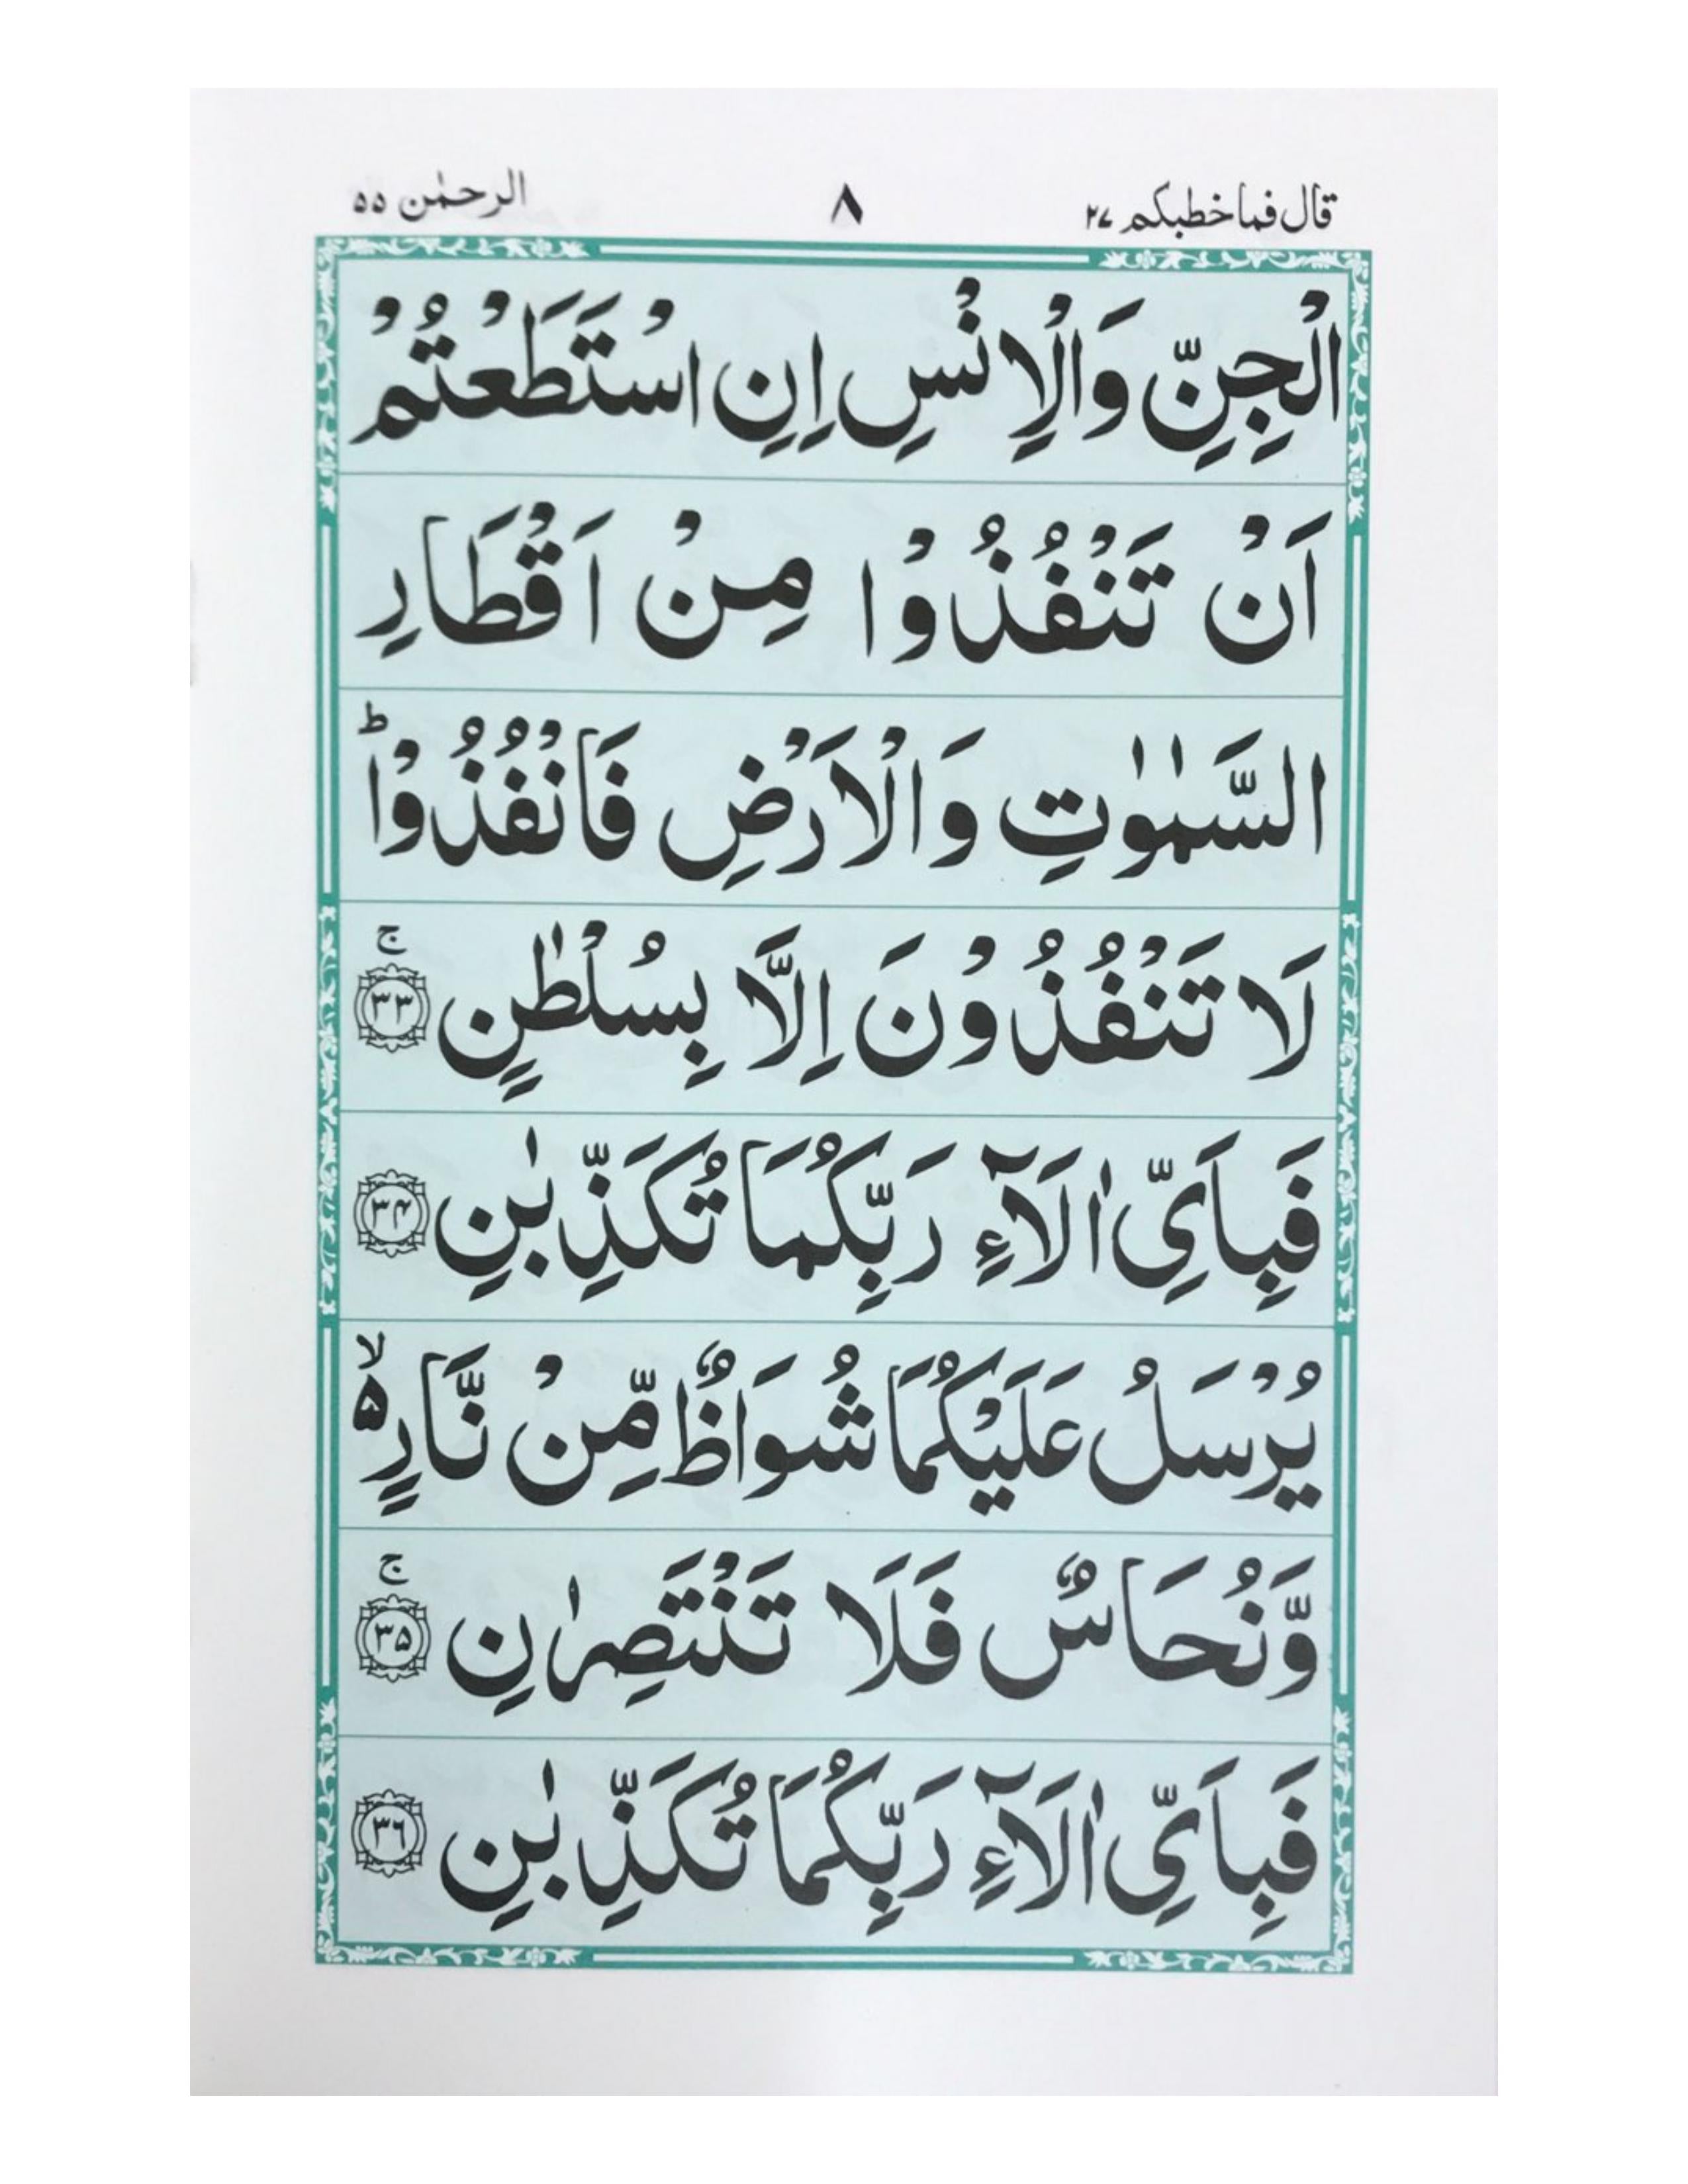 قال فما خطبكم ٢٧ ٨ الرحمٰن ٥٥
الْجِنِّ وَالْاِنْسِ اِنِ اسْتَطَعْتُمْ
اَنْ تَنْفُذُوْا مِنْ اَقْطَارِ
السَّمٰوٰتِ وَالْاَرْضِ فَانْفُذُوْا ؕ
لَا تَنْفُذُوْنَ اِلَّا بِسُلْطٰنٍ ۚ ﴿۳۳﴾
فَبِاَىِّ اٰلَآءِ رَبِّكُمَا تُكَذِّبٰنِ ﴿۳۴﴾
يُرْسَلُ عَلَيْكُمَا شُوَاظٌ مِّنْ نَّارٍ ۵ ۙ
وَّنُحَاسٌ فَلَا تَنْتَصِرٰنِ ۚ ﴿۳۵﴾
فَبِاَىِّ اٰلَآءِ رَبِّكُمَا تُكَذِّبٰنِ ﴿۳۶﴾